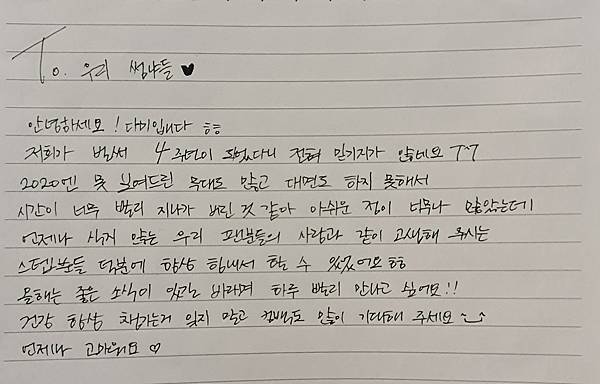 To. 우리 썸냐들 ♥
안녕하세요! 다미입니다 ㅎㅎ
저희가 벌써 4주년이 되었다니 전혀 믿기지가 않네요 ㅜㅜ
2020엔 못 보여드린 무대도 많고 대면도 하지 못해서
시간이 너무 빨리 지나가 버린 것 같아 아쉬운 점이 너무나 많았는데
언제나 식지 않는 우리 팬분들의 사랑과 같이 고생해 주시는
스텝분들 덕분에 항상 힘내서 할 수 있었어요 ㅎㅎ
올해는 좋은 소식이 있길 바라며 하루 빨리 만나고 싶어요!!
건강 항상 챙기는거 잊지 말고 컴백도 많이 기대해 주세요
언제나 고마워요 ♡